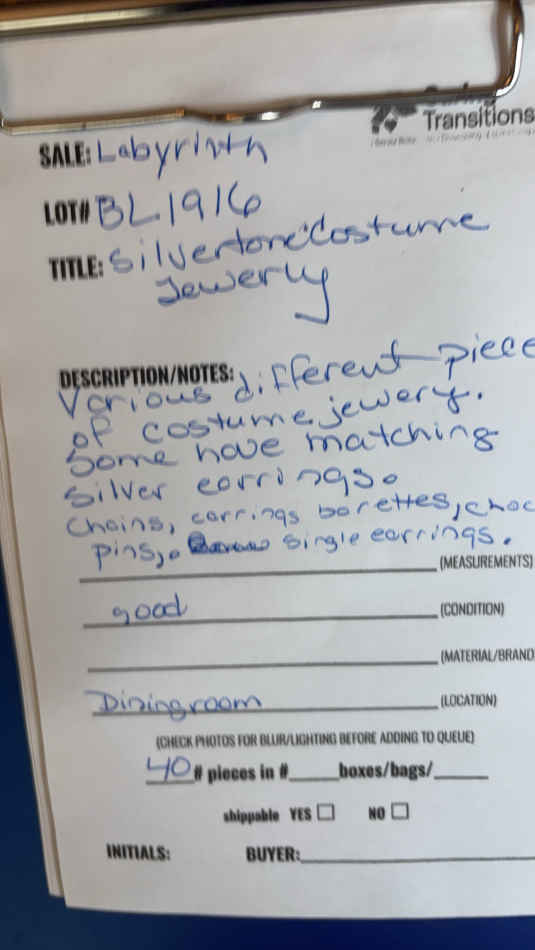 Transitions
SALE: Labyrinth
LOT# BL1916
TITLE: Silvertone Costume
Jewerly
DESCRIPTION/NOTES:
Various different piece
of costume jewery.
Some have matching
Silver earrings.
Chains, earrings barettes, choc
pins, single earrings.
(MEASUREMENTS)
good (CONDITION)
(MATERIAL/BRAND
Diningroom (LOCATION)
(CHECK PHOTOS FOR BLUR/LIGHTING BEFORE ADDING TO QUEUE)
40 # pieces in #_____boxes/bags/_____
shippable YES ☐ NO ☐
INITIALS: BUYER: